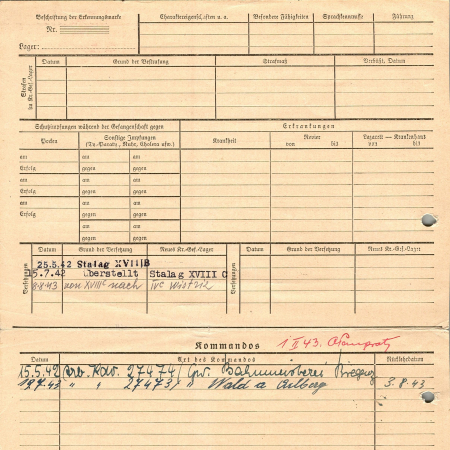 Beschriftung der Erkennungsmarke
Nr.
Lager:
Charaktereigenschaften u. a.
Besondere Fähigkeiten
Sprachkenntnisse
Führung
Strafen im Kr.-Gef.-Lager
Datum
Grund der Bestrafung
Strafmaß
Verbüßt, Datum
Schutzimpfungen während der Gefangenschaft gegen
Pocken
Sonstige Impfungen
(Ty.-Paraty., Ruhr, Cholera usw.)
am am
Erfolg gegen
am am
Erfolg gegen
am am
Erfolg gegen
am
gegen
Erkrankungen
Krankheit
Revier
von bis
Lazarett — Krankenhaus
von bis
Versetzungen
Datum
Grund der Versetzung
Neues Kr.-Gef.-Lager
25.5.42 Stalag XVIIB
15.7.42 überstellt Stalag XVIII C
8.8.43 von XVIIIC nach IVc Wistritz
Versetzungen
Datum
Grund der Versetzung
Neues Kr.-Gef.-Lager
Kommandos
Datum
Art des Kommandos
Rückkehrdatum
15.5.42 Arb. Kdo. 27474/
27473/ " Wald a Arlberg 3.8.43